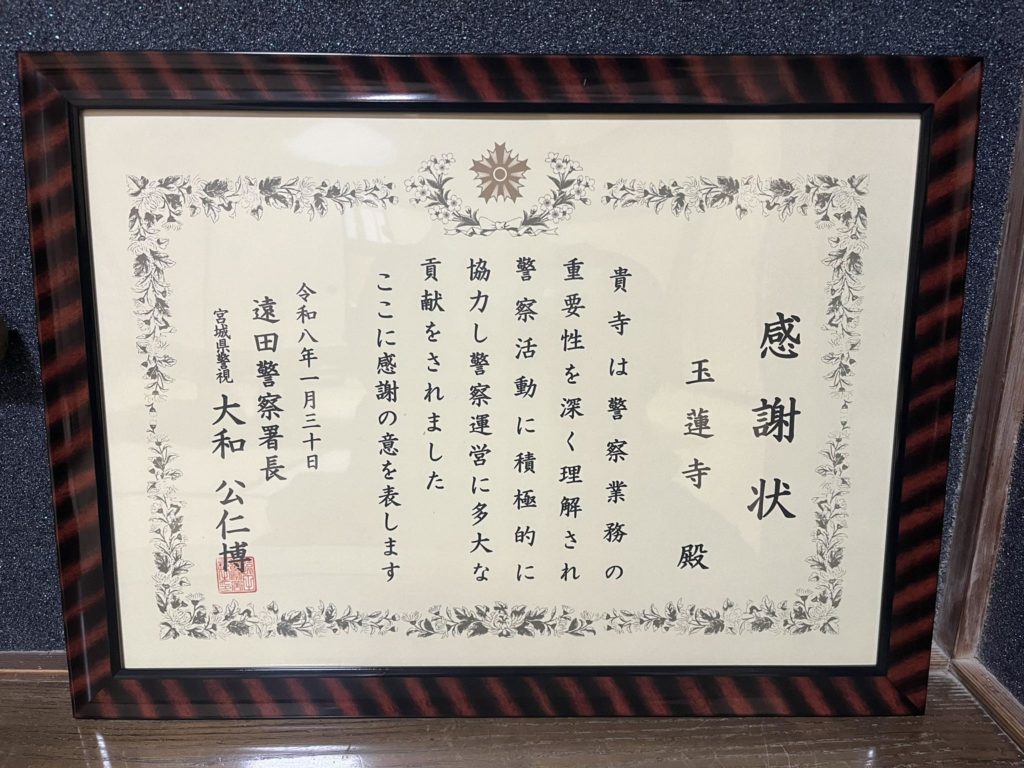 感謝状
玉蓮寺 殿
貴寺は警察業務の
重要性を深く理解され
警察活動に積極的に
協力し警察運営に多大な
貢献をされました
ここに感謝の意を表します
令和八年一月三十日
遠田警察署長
宮城県警視 大和 公仁博